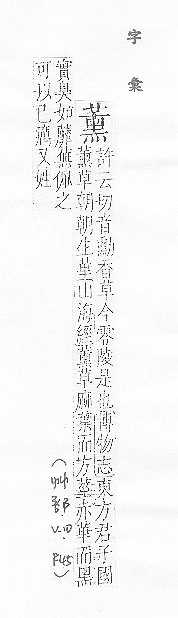 字彙
薰
許云切音勳香草今零陵是也博物志東方君子國
薰草朝朝生華山海經薰草麻葉而方莖亦華而黑
實臭如蘼蕪佩之
可以已癘又姓
(艸部.V.四.F45)